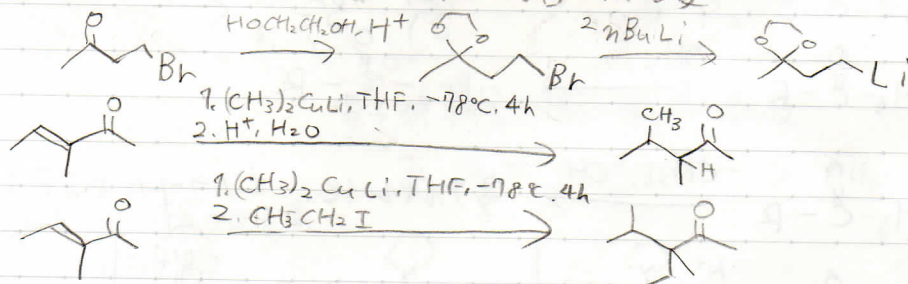 O HOCH2CH2OH, H+ O O 2 nBuLi O O
Br Br Li
1. (CH3)2CuLi, THF, -78°C, 4h
2. H+, H2O
O CH3 O
H
1. (CH3)2CuLi, THF, -78°C, 4h
2. CH3CH2I
O O